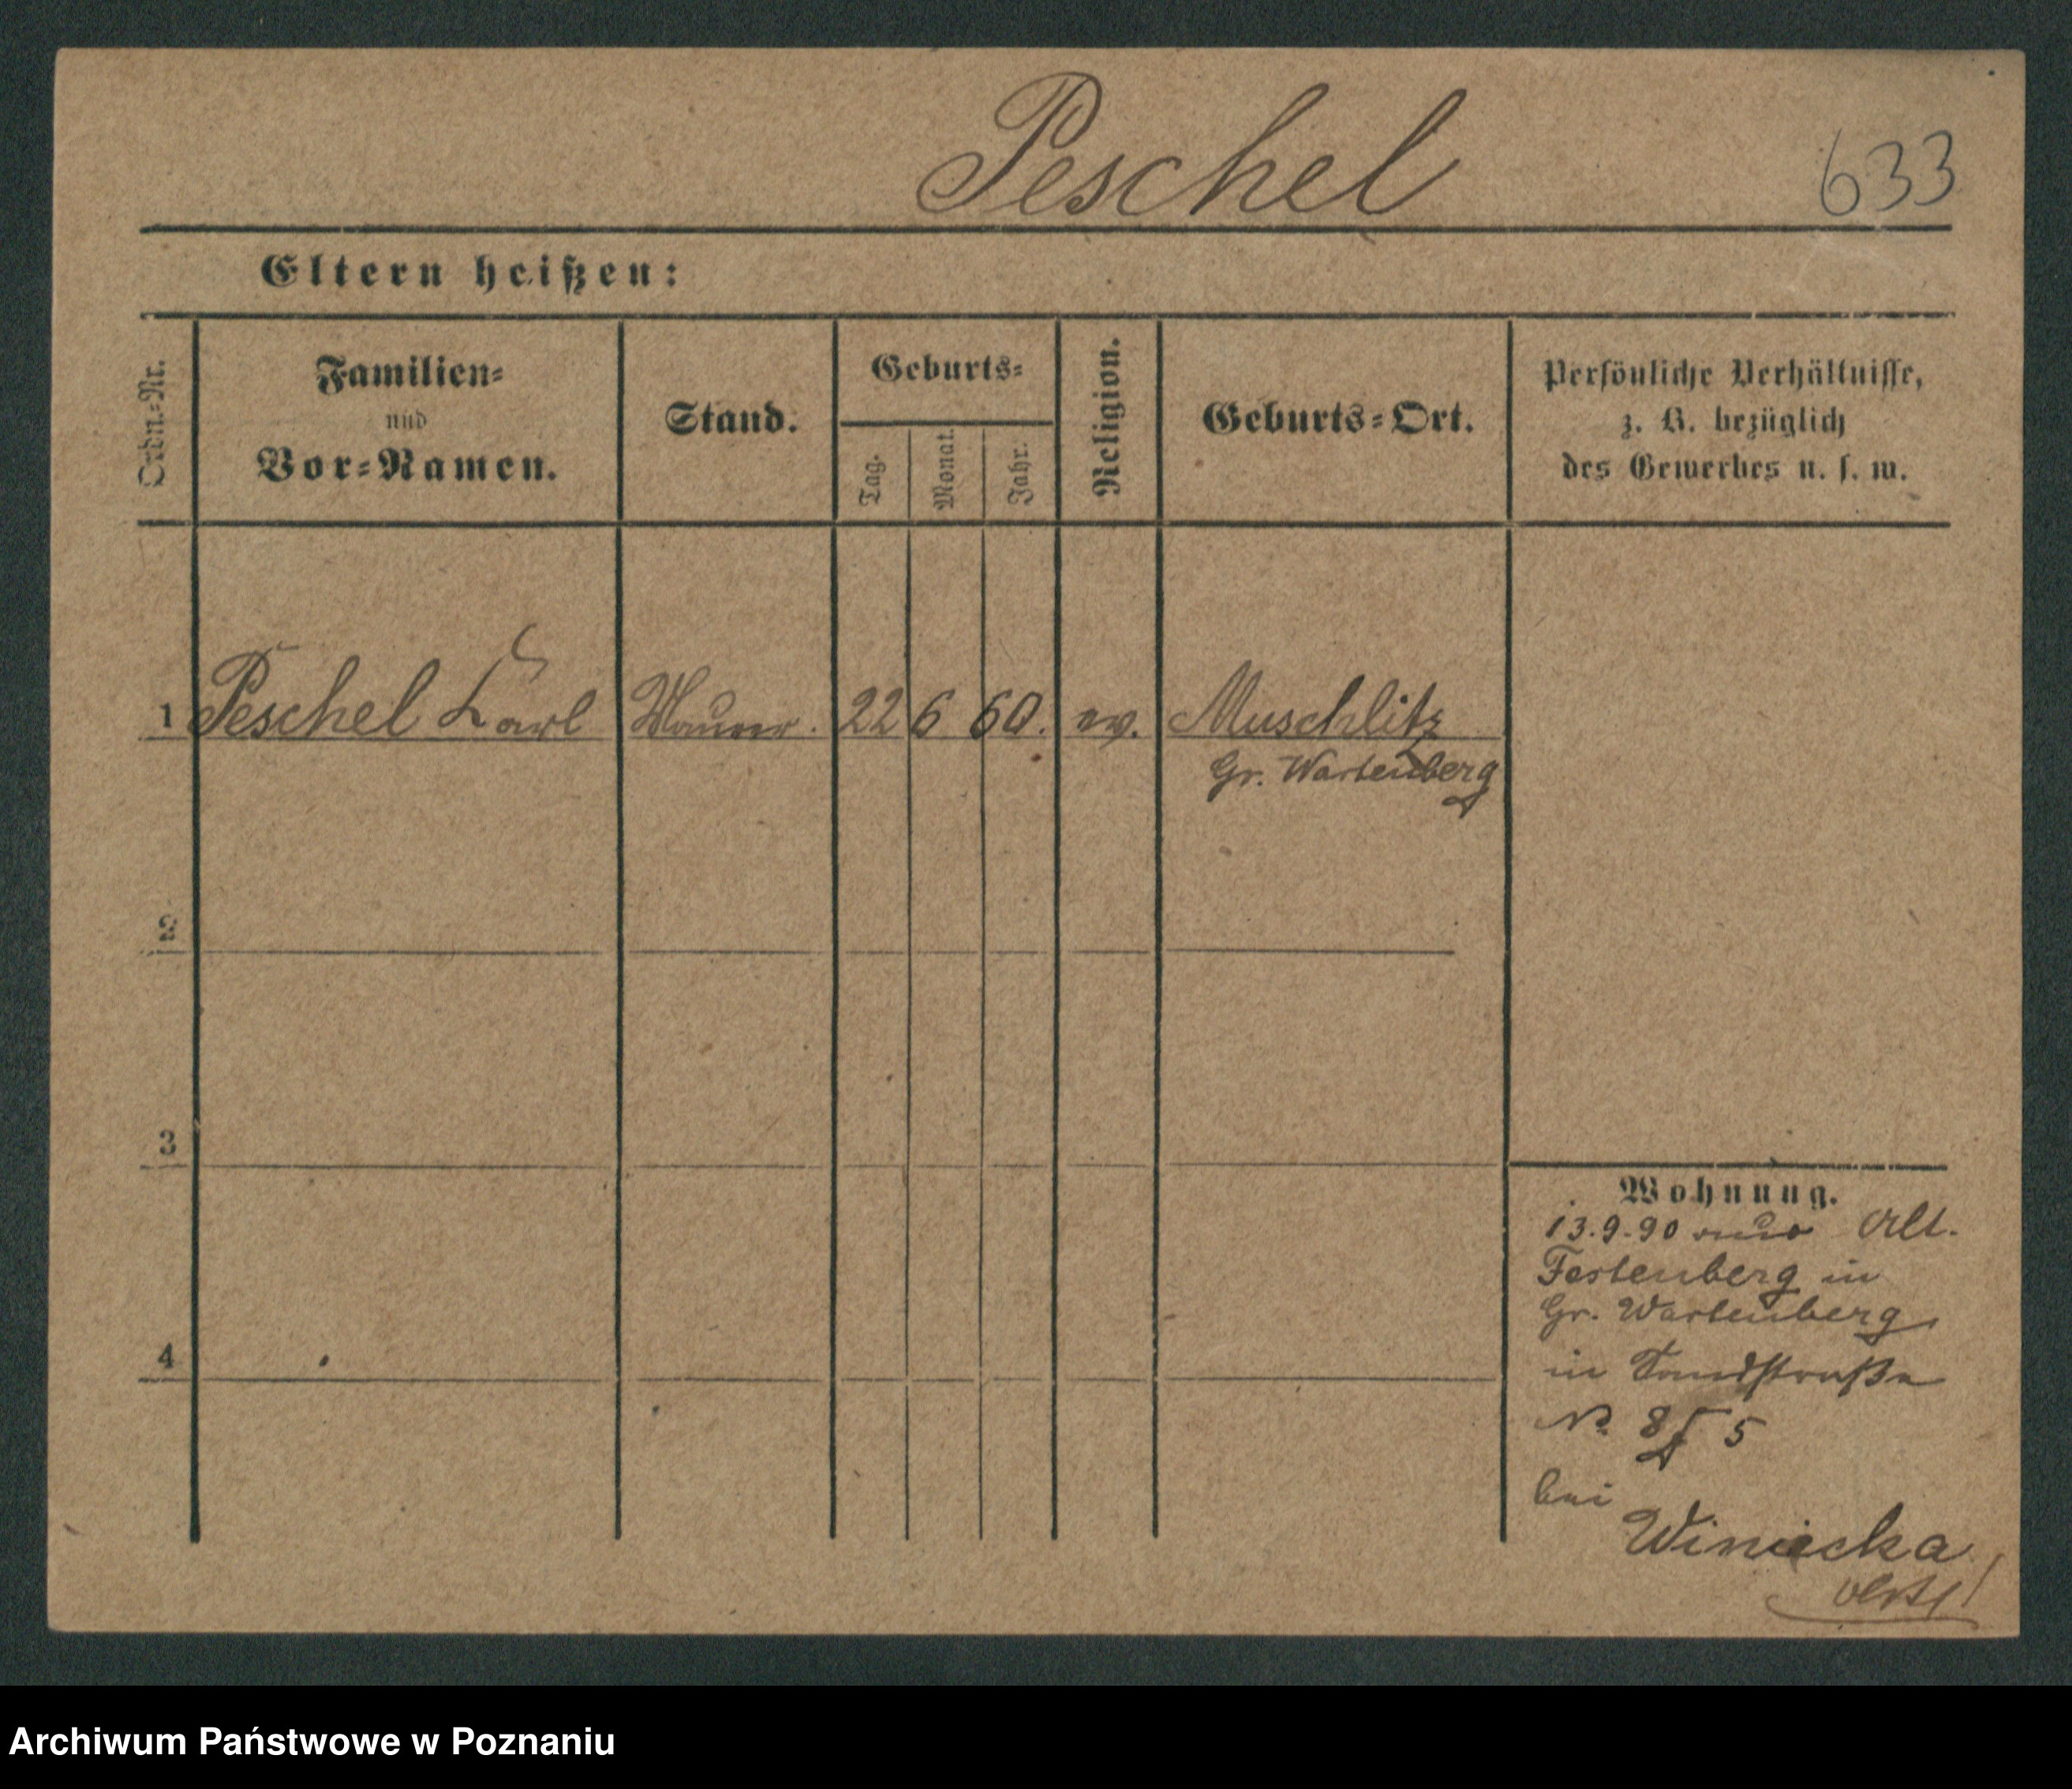 Peschel
633
Eltern heißen:
Ordn.-Nr.
Familien-
und
Vor-Namen.
Stand.
Geburts-
Tag.
Monat.
Jahr.
Religion.
Geburts-Ort.
Persönliche Verhältnisse,
z. B. bezüglich
des Gewerbes u. s. w.
1 Peschel Karl Maurer. 22 6 60. ev. Muschlitz
Gr. Wartenberg
2
3
4
Wohnung.
13.9.90 aus Alt.
Festenberg in
Gr. Wartenberg
in Sandstraße
No. 8 5
bei
Winiecka
Archiwum Państwowe w Poznaniu